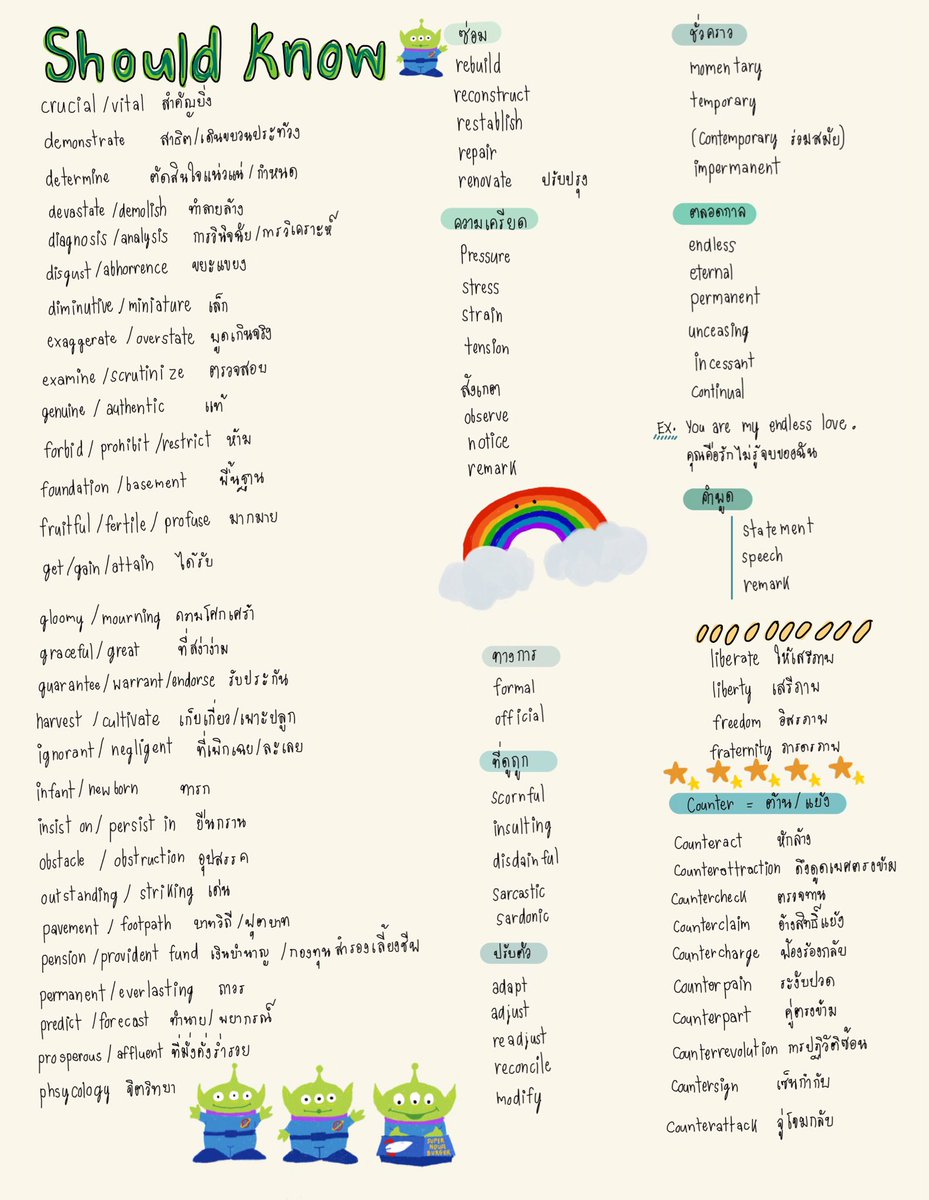 Should Know
crucial / vital สำคัญยิ่ง
demonstrate สาธิต/เดินขบวนประท้วง
determine ตัดสินใจแน่วแน่ / กำหนด
devastate /demolish ทำลายล้าง
diagnosis /analysis การวินิจฉัย /การวิเคราะห์
disgust /abhorrence ขยะแขยง
diminutive / miniature เล็ก
exaggerate / overstate พูดเกินจริง
examine /scrutinize ตรวจสอบ
genuine / authentic แท้
forbid / prohibit /restrict ห้าม
foundation / basement พื้นฐาน
fruitful / fertile / profuse มากมาย
get/gain/attain ได้รับ
gloomy / mourning ความโศกเศร้า
graceful / great ที่สง่างาม
guarantee/warrant/endorse รับประกัน
harvest / cultivate เก็บเกี่ยว/เพาะปลูก
ignorant / negligent ที่เพิกเฉย/ละเลย
infant / newborn ทารก
insist on / persist in ยืนกราน
obstacle / obstruction อุปสรรค
outstanding / striking เด่น
pavement / footpath บาทวิถี /ฟุตบาท
pension /provident fund เงินบำนาญ /กองทุนสำรองเลี้ยงชีพ
permanent / everlasting ถาวร
predict /forecast ทำนาย/ พยากรณ์
prosperous / affluent ที่มั่งคั่งร่ำรวย
phsycology จิตวิทยา
SUPER NOVA BURGER
ซ่อม
rebuild
reconstruct
restablish
repair
renovate ปรับปรุง
ความเครียด
Pressure
stress
strain
tension
สังเกต
observe
notice
remark
ทางการ
formal
official
ที่ดูถูก
scornful
insulting
disdainful
sarcastic
sardonic
ปรับตัว
adapt
adjust
readjust
reconcile
modify
ชั่วคราว
momentary
temporary
(Contemporary ร่วมสมัย)
impermanent
ตลอดกาล
endless
eternal
permanent
unceasing
incessant
continual
Ex. You are my endless love.
คุณคือรักไม่รู้จบของฉัน
คำพูด
statement
speech
remark
liberate ให้เสรีภาพ
liberty เสรีภาพ
freedom อิสรภาพ
fraternity ภารดรภาพ
Counter = ต้าน/แย้ง
Counteract หักล้าง
Counterattraction ดึงดูดเพศตรงข้าม
Countercheck ตรวจทาน
Counterclaim อ้างสิทธิ์แย้ง
Countercharge ฟ้องร้องกลับ
Counterpain ระงับปวด
Counterpart คู่ตรงข้าม
Counterrevolution การปฏิวัติซ้อน
Countersign เซ็นกำกับ
Counterattack จู่โจมกลับ